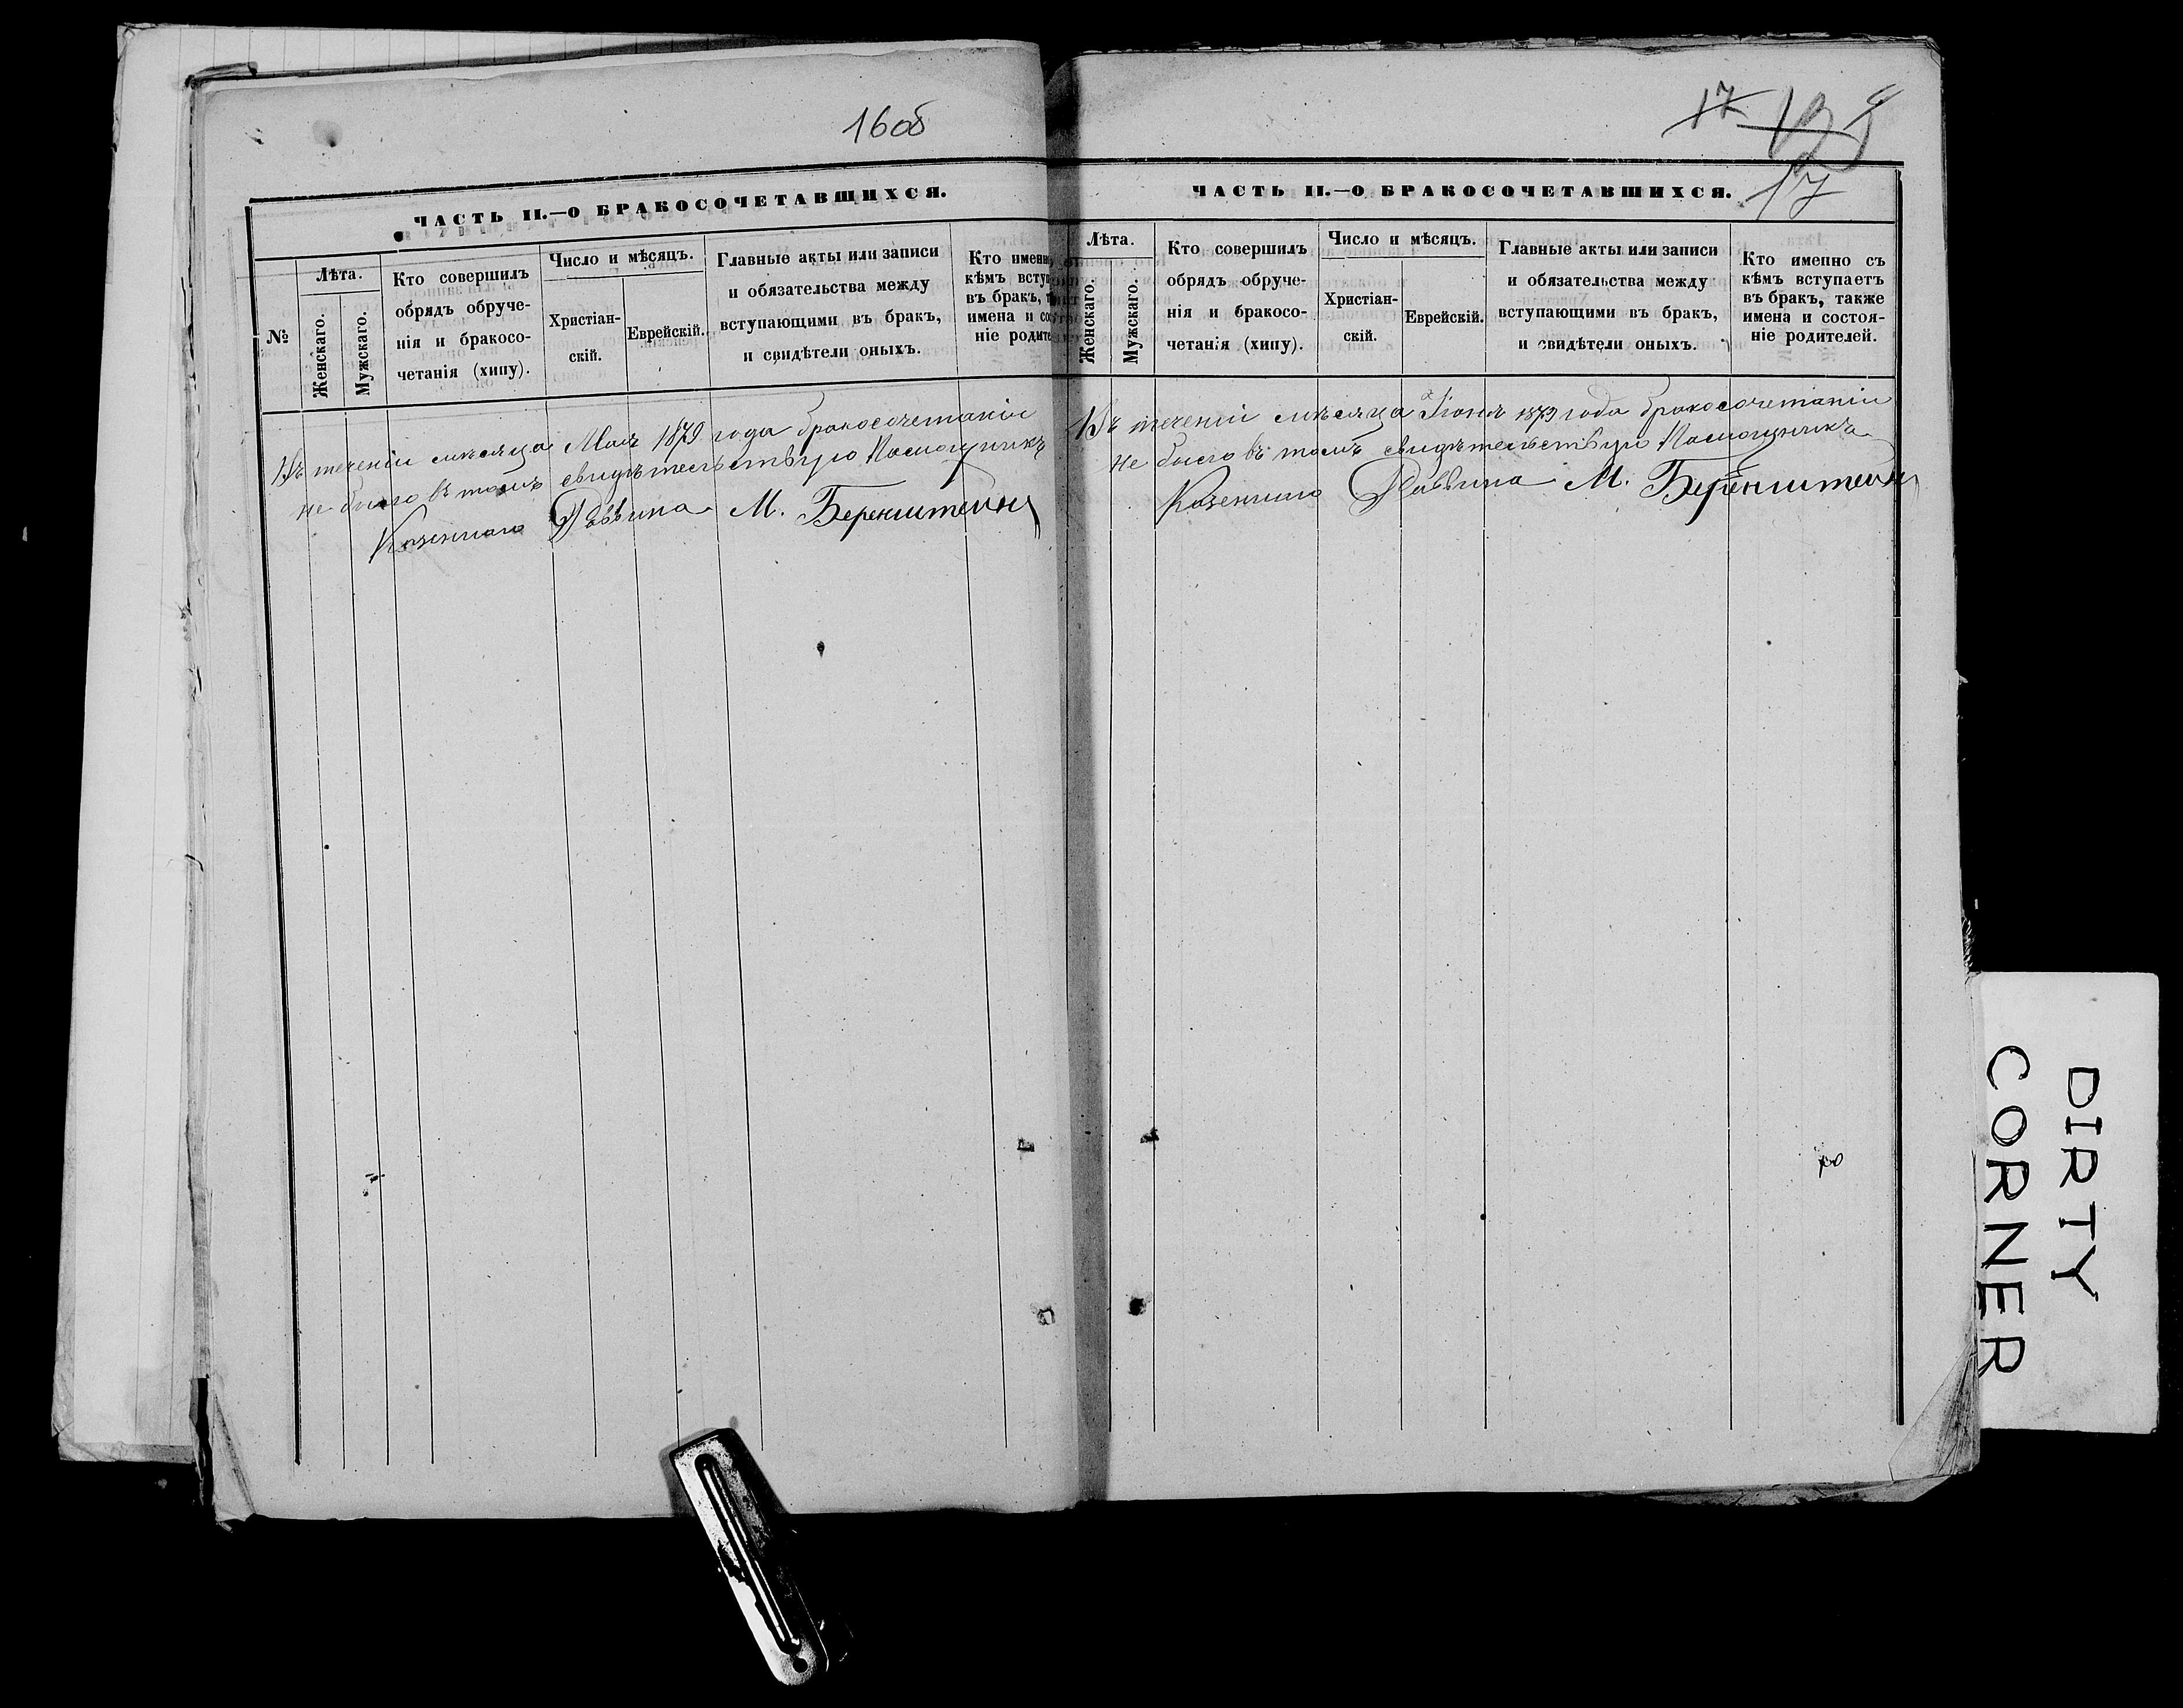 16об
ЧАСТЬ II.—О БРАКОСОЧЕТАВШИХСЯ.
№
Лѣта.
Женскаго.
Мужскаго.
Кто совершилъ
обрядъ обруче-
нія и бракосо-
четанія (хипу).
Число и мѣсяцъ.
Христіан-
скій.
Еврейскій.
Главные акты или записи
и обязательства между
вступающими въ бракъ,
и свидѣтели оныхъ.
Кто именно
кѣмъ всту
въ бракъ,
имена и сос
ніе родите
Въ теченіи мѣсяца Мая 1879 года бракосочетаніи
не было въ томъ свидѣтельствую Помощникъ
Казеннаго Раввина М. Беренштейнъ
17
17
ЧАСТЬ II.—О БРАКОСОЧЕТАВШИХСЯ.
Лѣта.
Женскаго.
Мужскаго.
Кто совершилъ
обрядъ обруче-
нія и бракосо-
четанія (хипу).
Число и мѣсяцъ.
Христіан-
скій.
Еврейскій.
Главные акты или записи
и обязательства между
вступающими въ бракъ,
и свидѣтели оныхъ.
Кто именно съ
кѣмъ вступаетъ
въ бракъ, также
имена и состоя-
ніе родителей.
Въ теченіи мѣсяца Іюня 1879 года бракосочетаніи
не было въ томъ свидѣтельствую Помощникъ
Казеннаго Раввина М. Беренштейнъ
DIRTY
CORNER